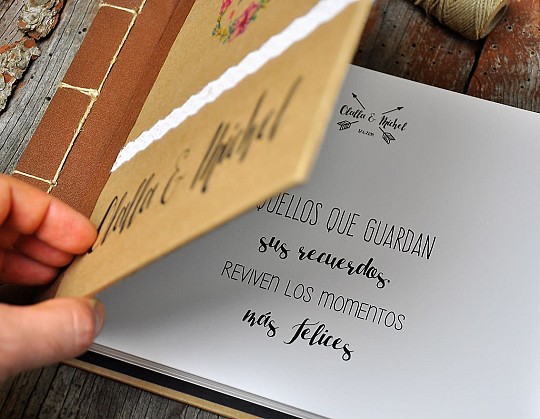 Olalla & Michel
Olalla & Michel
QUELLOS QUE GUARDAN
sus recuerdos.
REVIVEN LOS MOMENTOS
más felices